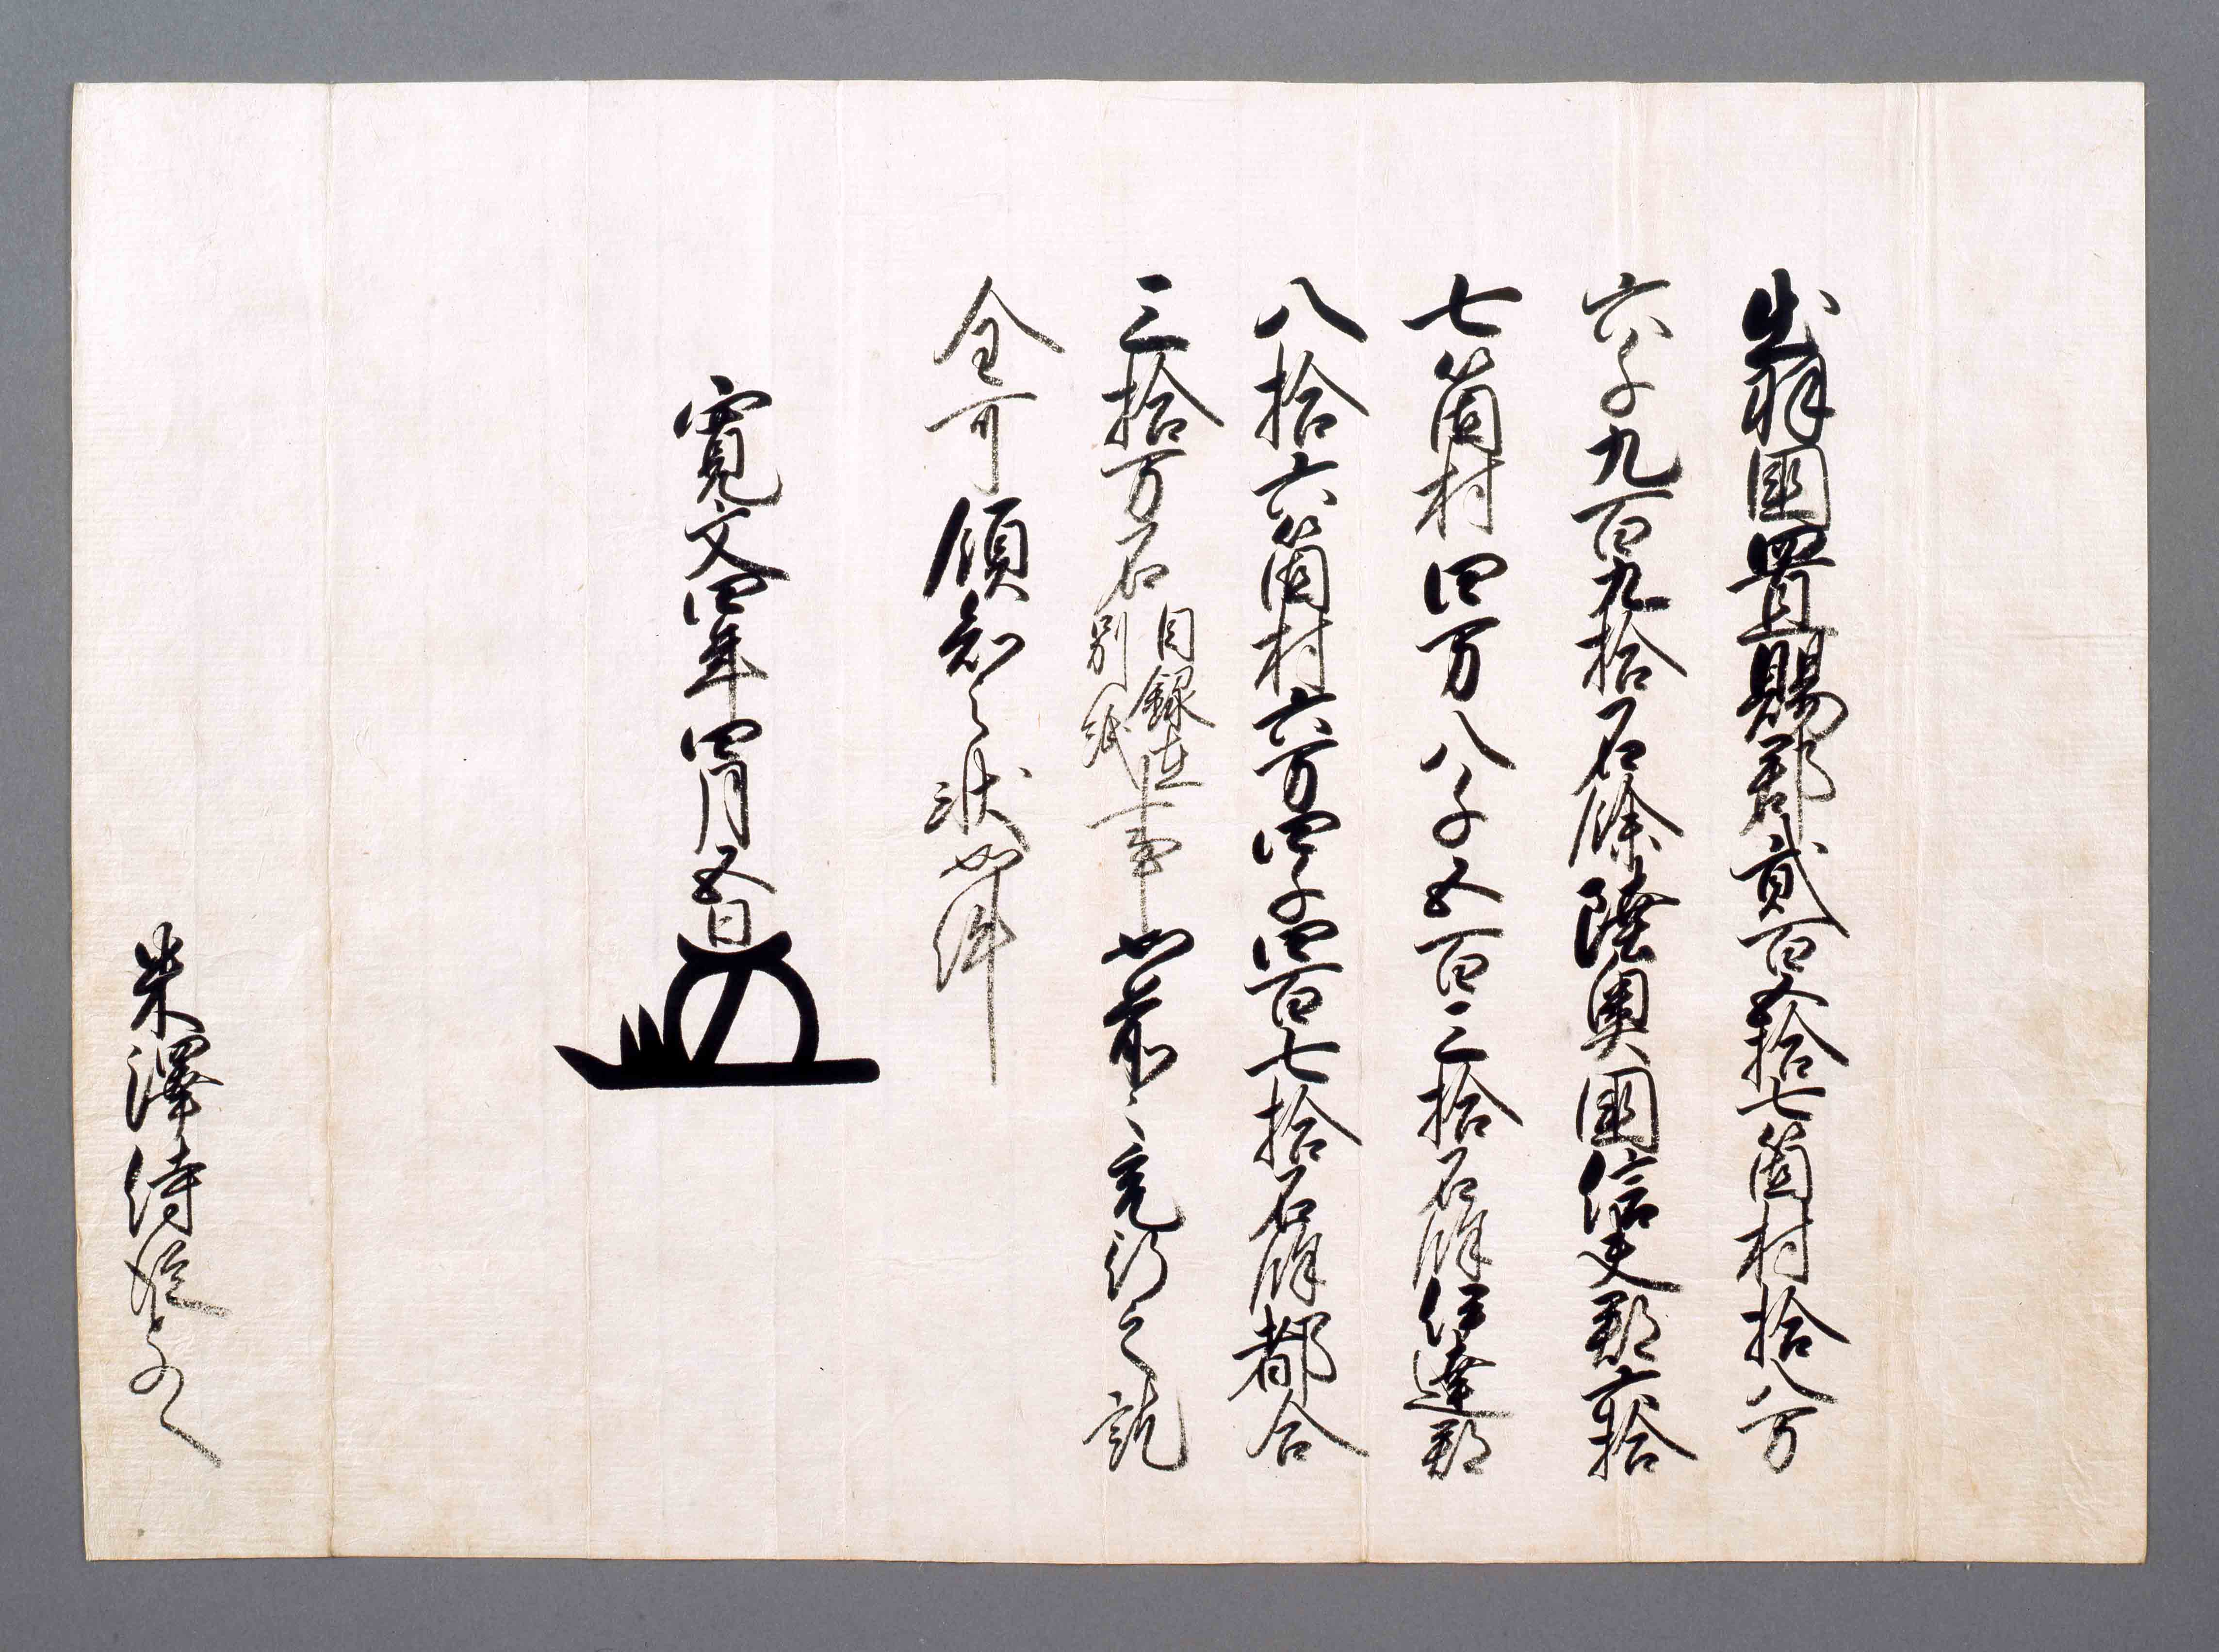 出羽国置賜郡貳百五拾七箇村拾八万
六千九百九拾石餘陸奥国信夫郡六拾
七箇村四万八千五百三拾石餘伊達郡
八拾六箇村六万四千四百七拾石餘都合
三拾万石目録在別紙事如前々充行之訖
全可領知之状如件
寛文四年四月五日
米澤侍従とのへ